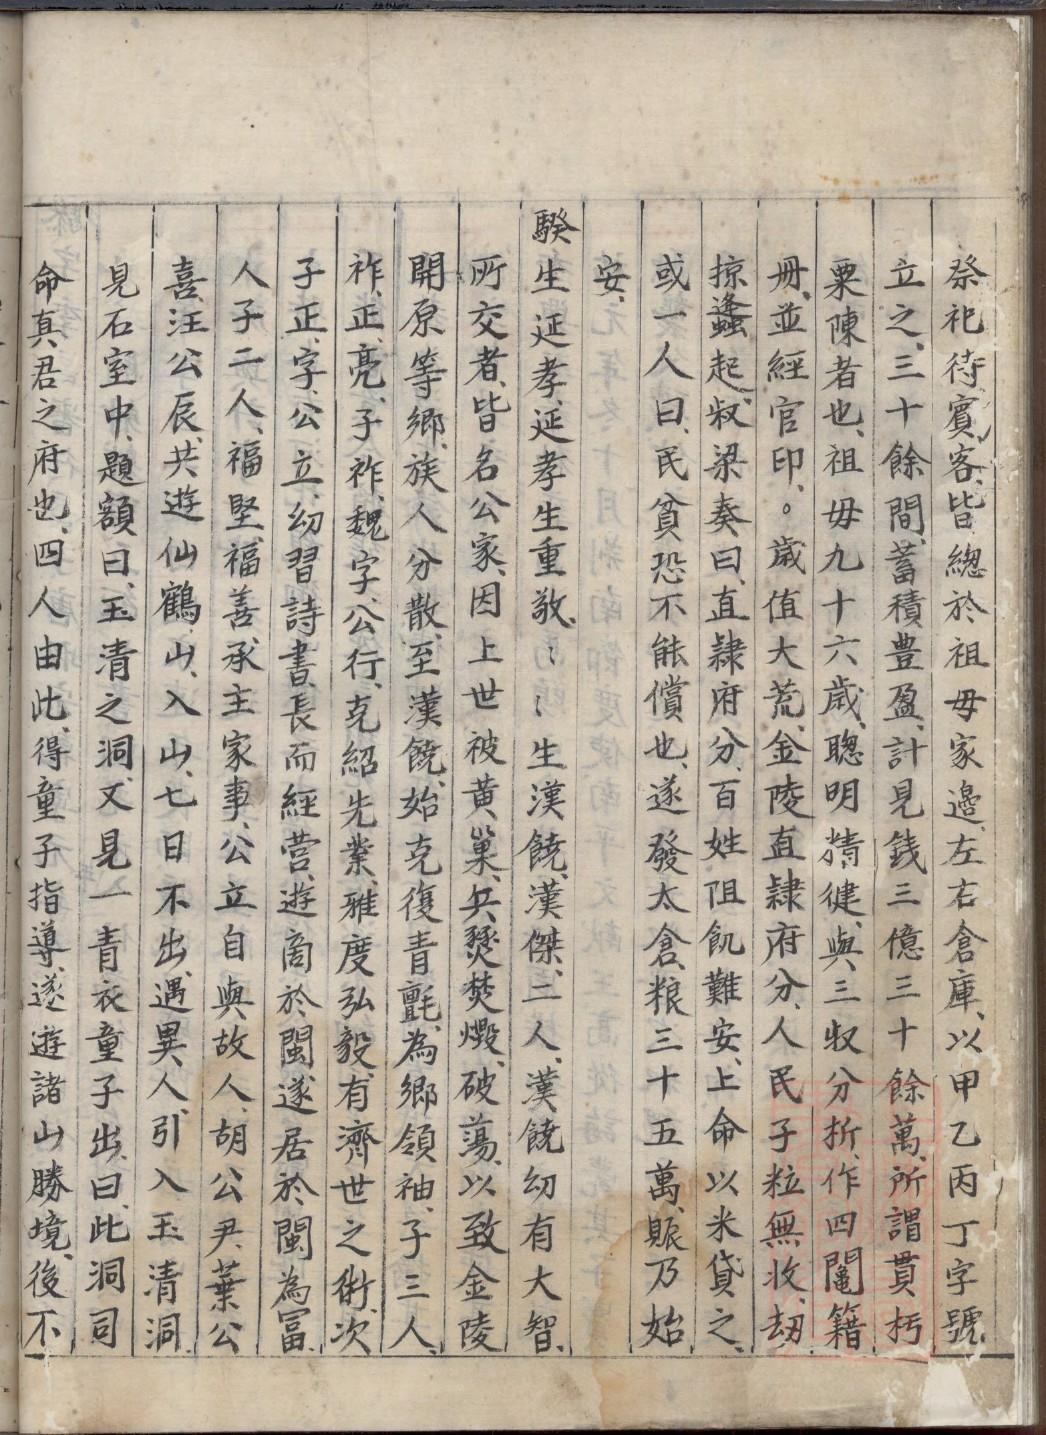 祭祀待賓客、皆總於祖毋家邉、左右倉庫、以甲乙丙丁字號
立之、三十餘間、蓄積豊盈、計見錢三億三十餘萬、所謂貫朽
粟陳者也、祖毋九十六歲、聰明精健、與三收分折、作四鬮籍
冊、並經官印、。歲值大荒、金陵直隸府分、人民子粒無收、刼
掠蜂起、叔梁奏曰、直隸府分、百姓阻飢難安、上命以米貸之、
或一人曰、民貧恐不能償也、遂發太倉、粮三十五萬、賑乃始
安、
騤生延孝、延孝生重敬、〻〻生漢饒、漢傑、二人、漢饒幼有大智、
所交者、皆名公家、因上世被黃巢、兵燹焚燬、破蕩、以致金陵
開原等鄉、族人分散、至漢饒、始克復青氈、為鄉領袖、子三人、
祚、正、亮、子祚、魏字、公行、克紹先業、雅度弘毅、有濟世之術、次
子正、字、公立、幼習詩書、長而經营、遊啇於閩、遂居於閩為冨、
人子二人、福堅、福善、承主家事、公立自與故人、胡公尹、葉公
喜、汪公辰、共遊仙鶴山、入山、七日不出、遇異人、引入玉清洞、
見石室中、題額曰、玉清之洞、又見一青衣童子出、曰、此洞司
命真君之府也、四人由此、得童子指導、遂遊諸山勝境、後不